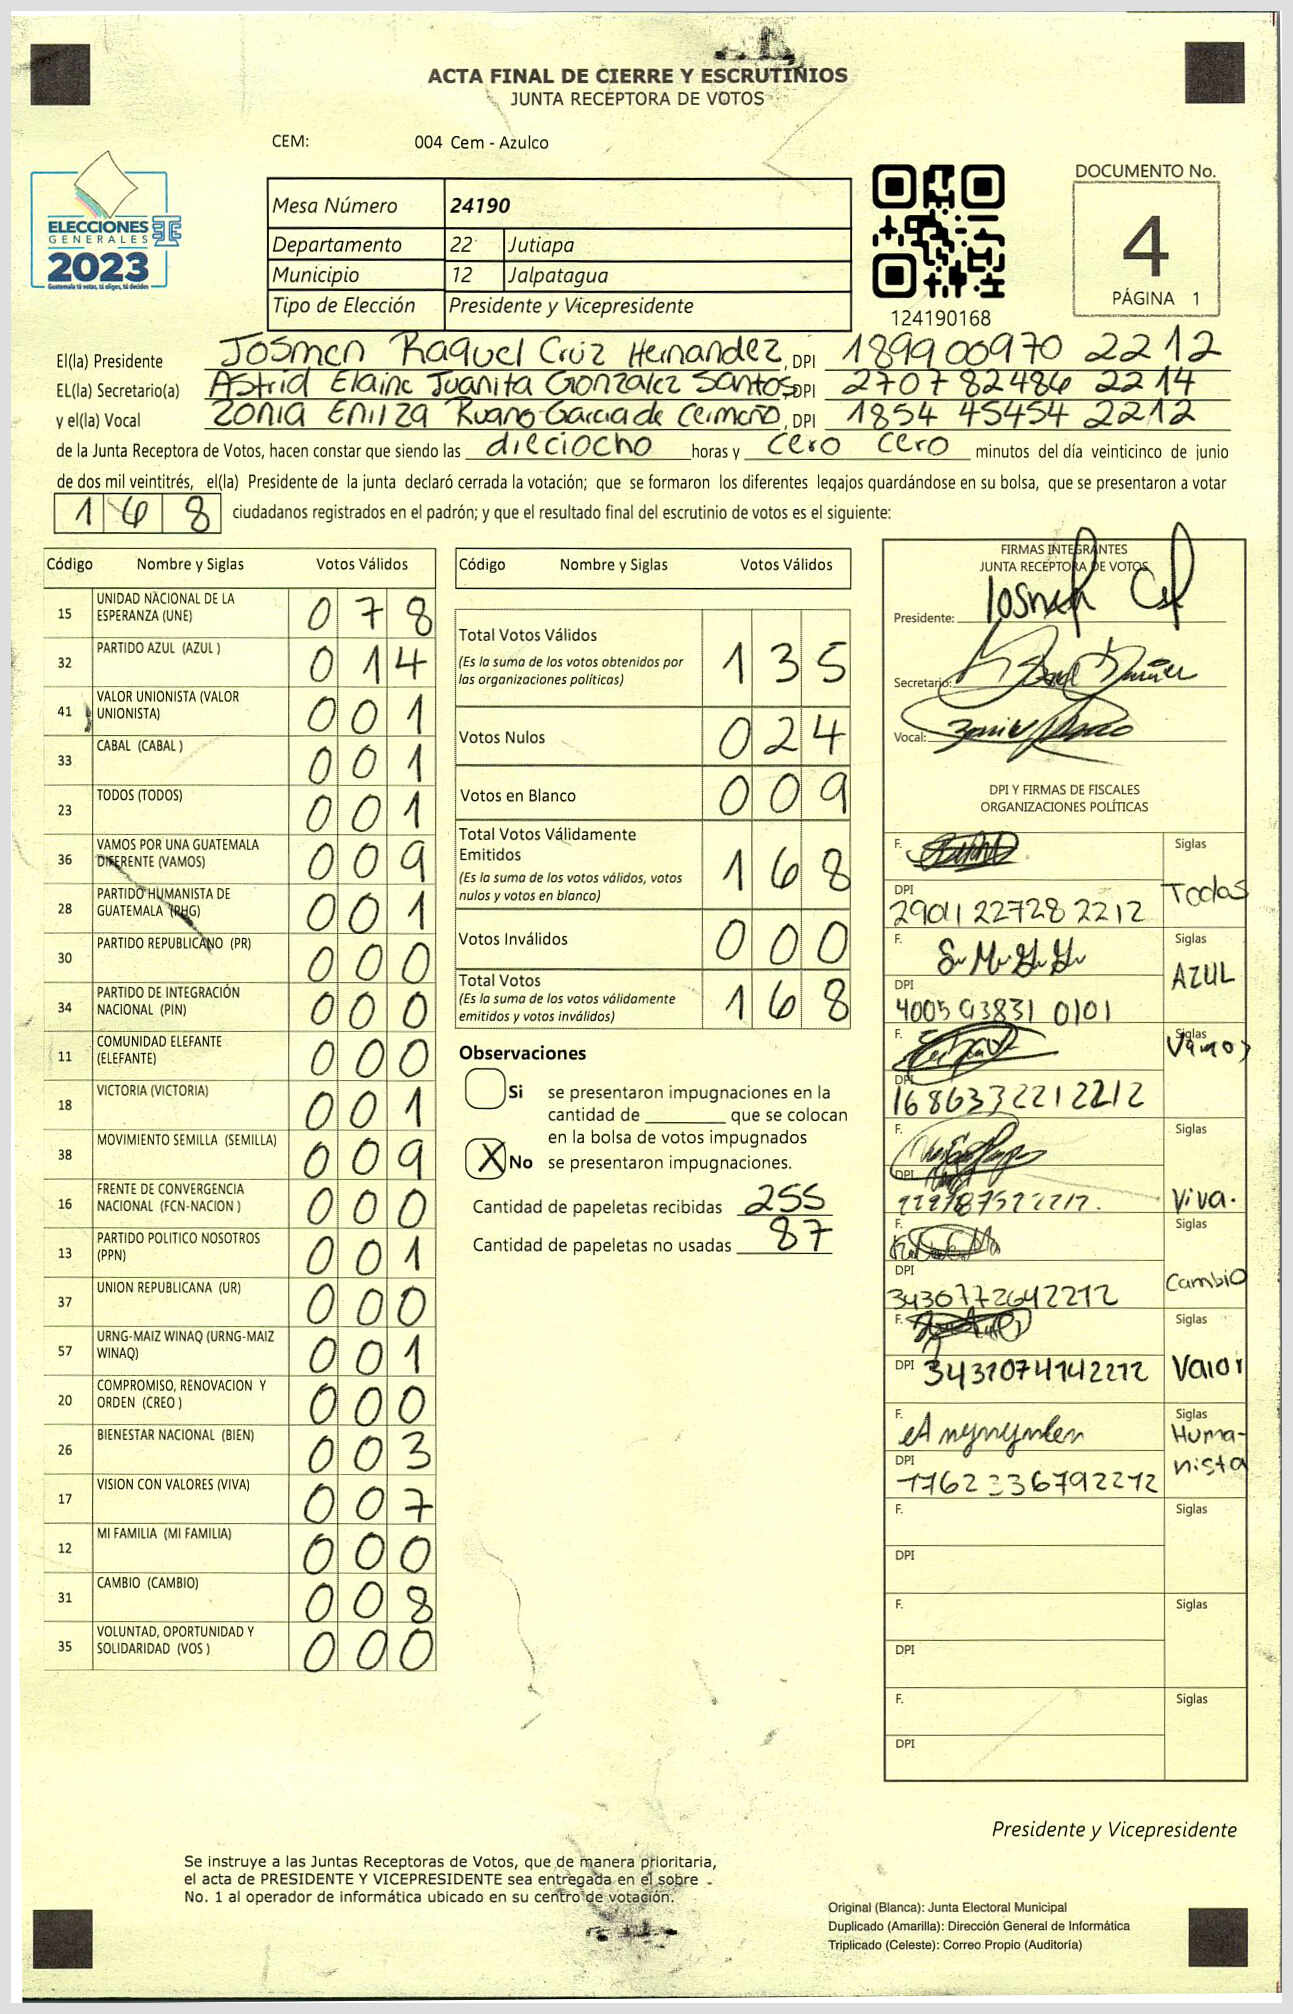 ACTA FINAL DE CIERRE Y ESCRUTINIOS
JUNTA RECEPTORA DE VOTOS
CEM: 004 Cem - Azulco
ELECCIONES
GENERALES
2023
Guatemala tú votas, tú eliges, tú decides
Mesa Número 24190
Departamento 22 Jutiapa
Municipio 12 Jalpatagua
Tipo de Elección Presidente y Vicepresidente
124190168
DOCUMENTO No.
4
PÁGINA 1
El(la) Presidente Josmen Raquel Cruz Hernandez, DPI 189900970 2212
EL(la) Secretario(a) Astrid Elaine Juanita Gonzalez Santos, DPI 270782486 2214
y el(la) Vocal Zonia Enilza Ruano Garcia de Cermeño, DPI 1854 45454 2212
de la Junta Receptora de Votos, hacen constar que siendo las dieciocho horas y cero cero minutos del día veinticinco de junio
de dos mil veintitrés, el(la) Presidente de la junta declaró cerrada la votación; que se formaron los diferentes legajos guardándose en su bolsa, que se presentaron a votar
168 ciudadanos registrados en el padrón; y que el resultado final del escrutinio de votos es el siguiente:
Código Nombre y Siglas Votos Válidos
15 UNIDAD NACIONAL DE LA ESPERANZA (UNE) 078
32 PARTIDO AZUL (AZUL ) 014
41 VALOR UNIONISTA (VALOR UNIONISTA) 001
33 CABAL (CABAL ) 001
23 TODOS (TODOS) 001
36 VAMOS POR UNA GUATEMALA DIFERENTE (VAMOS) 009
28 PARTIDO HUMANISTA DE GUATEMALA (PHG) 001
30 PARTIDO REPUBLICANO (PR) 000
34 PARTIDO DE INTEGRACIÓN NACIONAL (PIN) 000
11 COMUNIDAD ELEFANTE (ELEFANTE) 000
18 VICTORIA (VICTORIA) 001
38 MOVIMIENTO SEMILLA (SEMILLA) 009
16 FRENTE DE CONVERGENCIA NACIONAL (FCN-NACION ) 000
13 PARTIDO POLITICO NOSOTROS (PPN) 001
37 UNION REPUBLICANA (UR) 000
57 URNG-MAIZ WINAQ (URNG-MAIZ WINAQ) 001
20 COMPROMISO, RENOVACION Y ORDEN (CREO ) 000
26 BIENESTAR NACIONAL (BIEN) 003
17 VISION CON VALORES (VIVA) 007
12 MI FAMILIA (MI FAMILIA) 000
31 CAMBIO (CAMBIO) 008
35 VOLUNTAD, OPORTUNIDAD Y SOLIDARIDAD (VOS ) 000
Código Nombre y Siglas Votos Válidos
Total Votos Válidos 135
(Es la suma de los votos obtenidos por
las organizaciones políticas)
Votos Nulos 024
Votos en Blanco 009
Total Votos Válidamente
Emitidos 168
(Es la suma de los votos válidos, votos
nulos y votos en blanco)
Votos Inválidos 000
Total Votos 168
(Es la suma de los votos válidamente
emitidos y votos inválidos)
Observaciones
Si se presentaron impugnaciones en la
cantidad de ________ que se colocan
en la bolsa de votos impugnados
X No se presentaron impugnaciones.
Cantidad de papeletas recibidas 255
Cantidad de papeletas no usadas 87
FIRMAS INTEGRANTES
JUNTA RECEPTORA DE VOTOS
Presidente:
Secretario:
Vocal:
DPI Y FIRMAS DE FISCALES
ORGANIZACIONES POLÍTICAS
F. Siglas
DPI 2901122728 2212 Todos
F. Siglas
DPI 4005 93831 0101 AZUL
F. Siglas
DPI 1686332212212 Vamos
F. Siglas
DPI Viva.
F. Siglas
DPI 3430772642212 Cambio
F. Siglas
DPI 3431074142212 Valor
F. Siglas
DPI 1762336792212 Humanista
F. Siglas
DPI
F. Siglas
DPI
F. Siglas
DPI
Presidente y Vicepresidente
Se instruye a las Juntas Receptoras de Votos, que de manera prioritaria,
el acta de PRESIDENTE Y VICEPRESIDENTE sea entregada en el sobre
No. 1 al operador de informática ubicado en su centro de votación.
Original (Blanca): Junta Electoral Municipal
Duplicado (Amarilla): Dirección General de Informática
Triplicado (Celeste): Correo Propio (Auditoría)